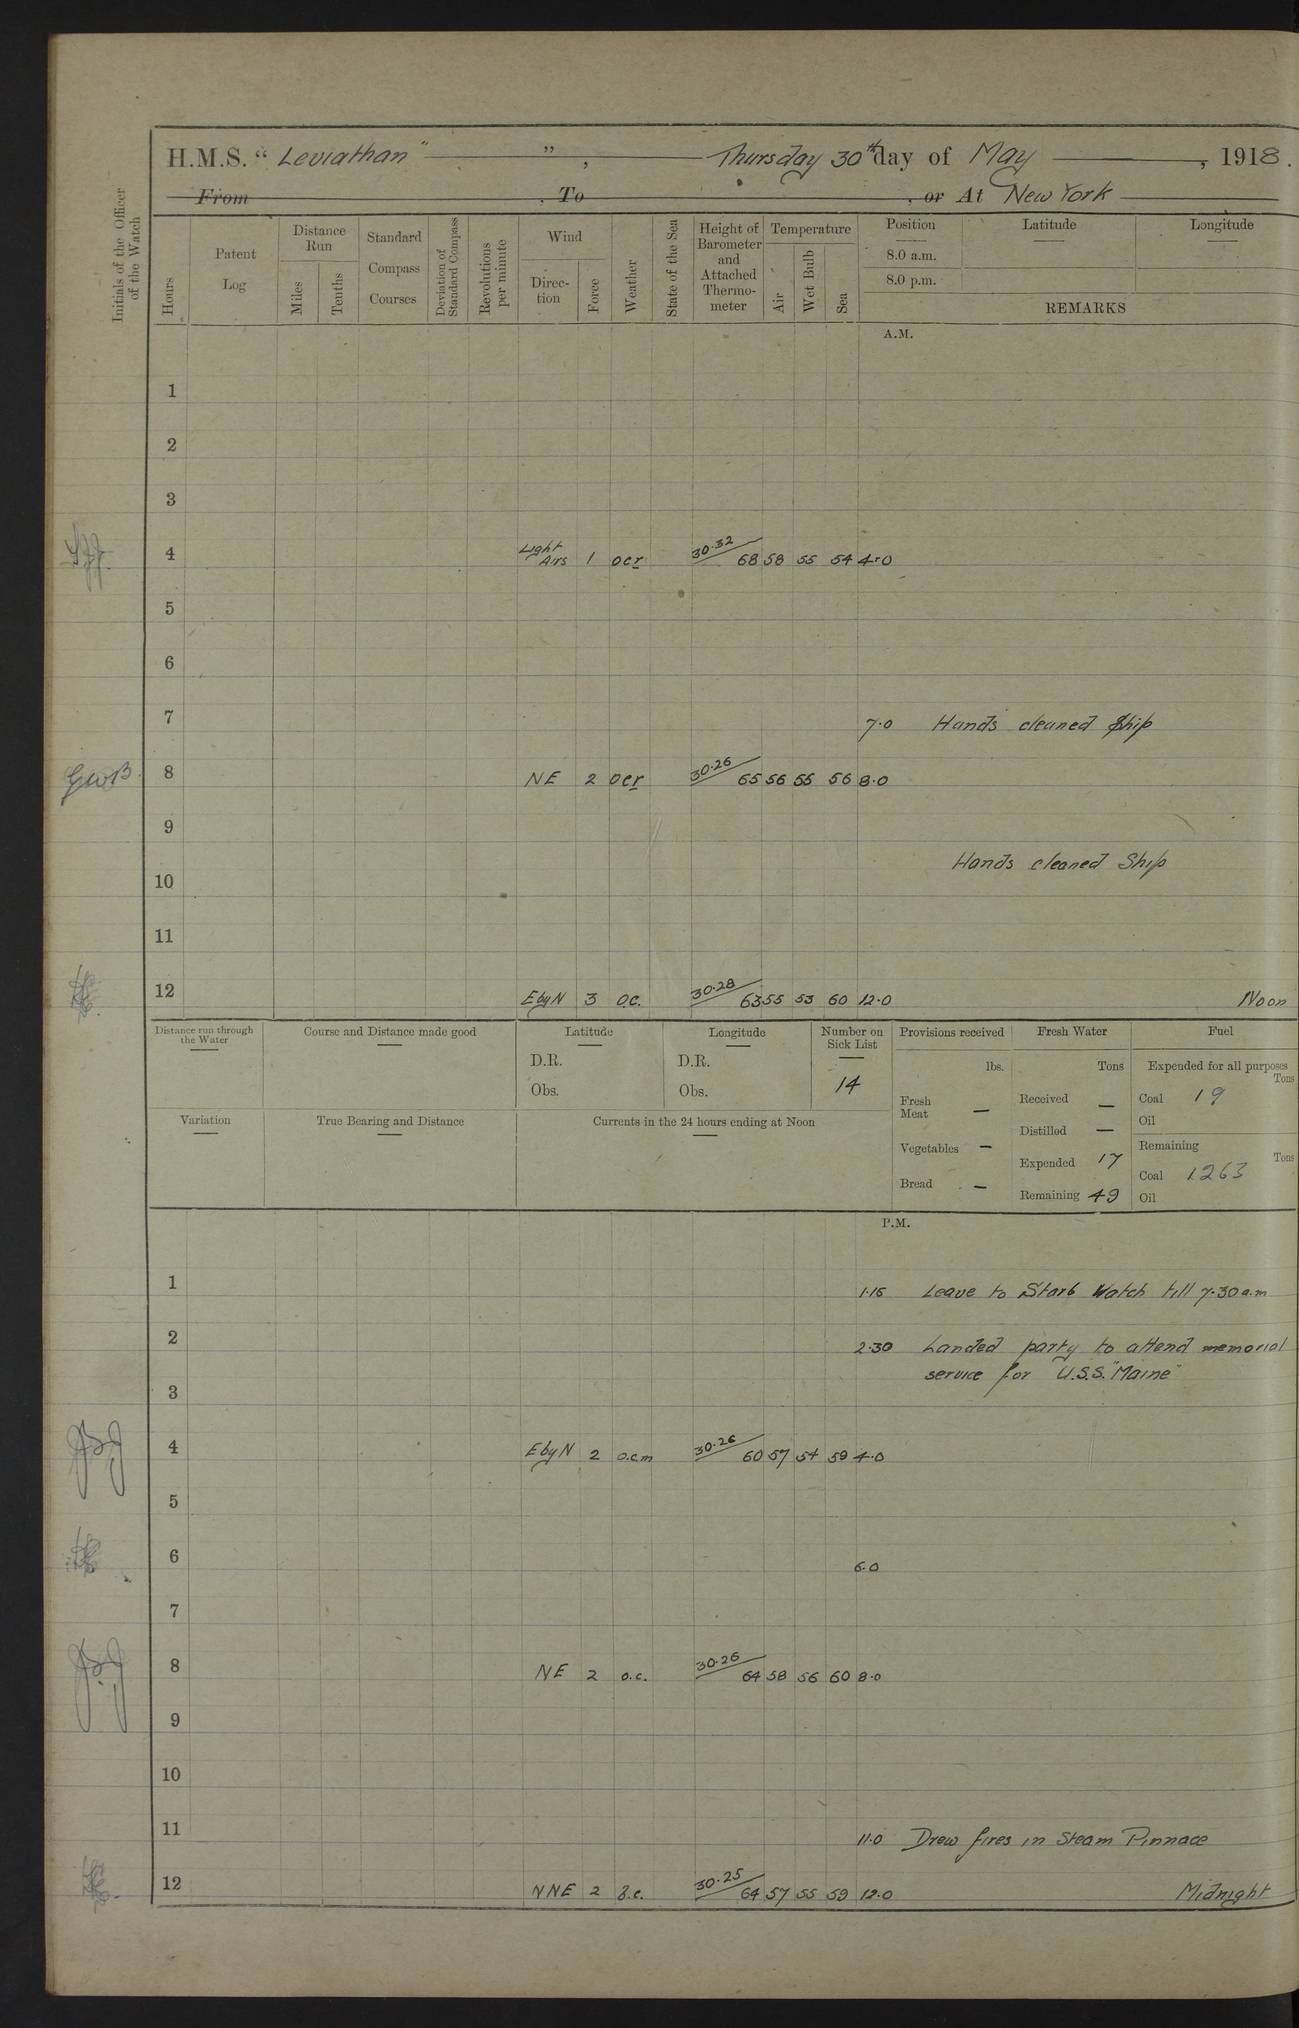 H.M.S. “ Leviathan ” , Thursday 30th day of May , 1918.
From , To , or At New York
Initials of the Officer of the Watch
Hours
Patent Log
Distance Run
Miles
Tenths
Standard Compass Courses
Deviation of Standard Compass
Revolutions per minute
Wind
Direction
Force
Weather
State of the Sea
Height of Barometer and Attached Thermometer
Temperature
Air
Wet Bulb
Sea
Position
8.0 a.m.
8.0 p.m.
Latitude
Longitude
REMARKS
A.M.
1
2
3
4 Light Airs 1 ocr 30.32 68 58 55 54 4.0
5
6
7 7.0 Hands cleaned Ship
GWB 8 NE 2 ocr 30.26 65 56 55 56 8.0
9
Hands cleaned Ship
10
11
12 E by N 3 o.c. 30.28 63 55 53 60 12.0 Noon
Distance run through the Water
Course and Distance made good
Latitude
D.R.
Obs.
Longitude
D.R.
Obs.
Number on Sick List
14
Provisions received
lbs.
Fresh Meat —
Vegetables —
Bread —
Fresh Water
Tons
Received —
Distilled —
Expended 17
Remaining 49
Fuel
Expended for all purposes
Tons
Coal 19
Oil
Remaining
Tons
Coal 1263
Oil
Variation
True Bearing and Distance
Currents in the 24 hours ending at Noon
P.M.
1 1.15 Leave to Starb Watch till 7.30 a.m
2 2.30 Landed party to attend memorial
service for U.S.S. "Maine"
3
4 E by N 2 o.c.m 30.26 60 57 54 59 4.0
5
6 6.0
7
8 NE 2 o.c. 30.26 64 58 56 60 8.0
9
10
11 11.0 Drew fires in Steam Pinnace
12 NNE 2 b.c. 30.25 64 57 55 59 12.0 Midnight